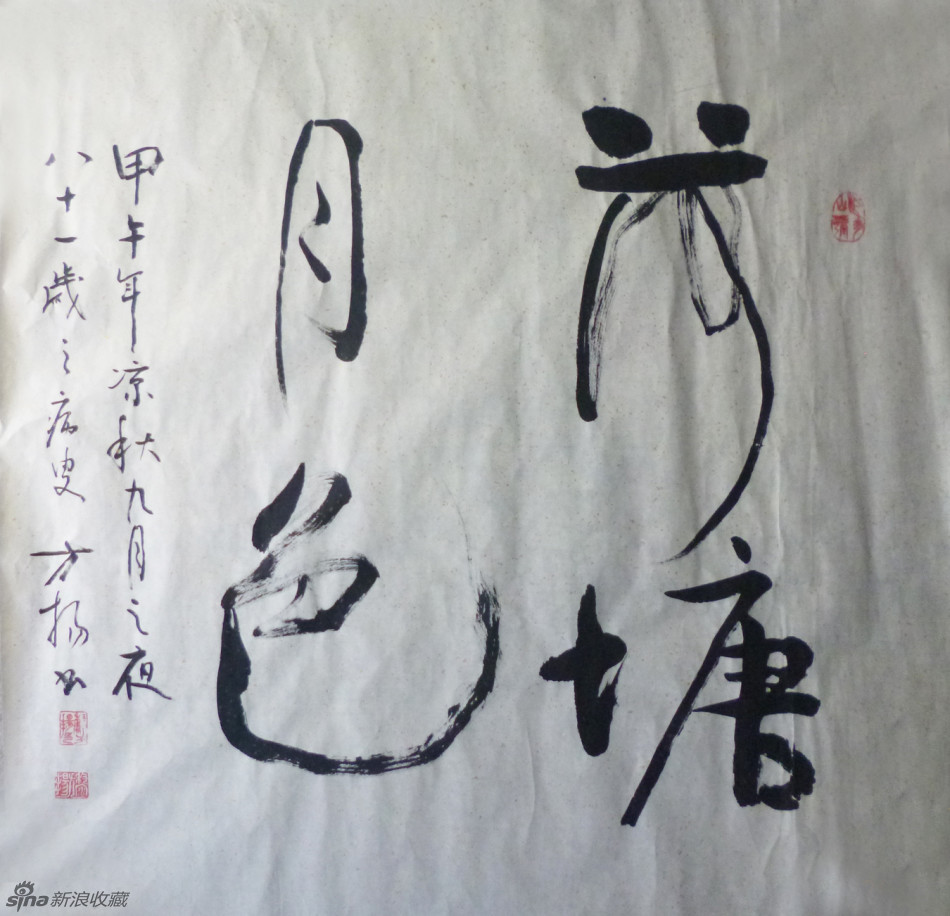 荷塘
月色
甲午年凉秋九月之夜
八十一歲之病叟 方揚书
sina新浪收藏